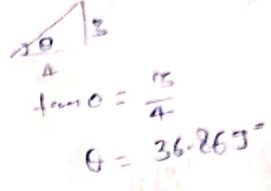 3
θ
4
tan θ = 3/4
θ = 36.869°